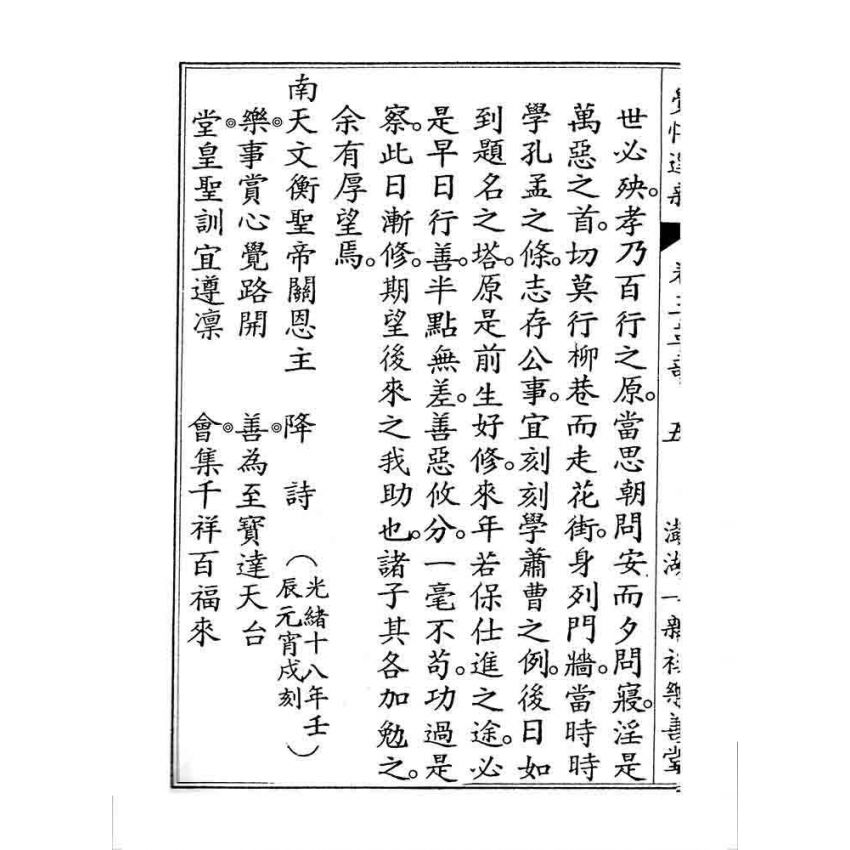 覺悟選新 卷三 五 澎湖一新社樂善堂
世必殃。孝乃百行之原。當思朝問安而夕問寢。淫是
萬惡之首。切莫行柳巷而走花街。身列門牆。當時時
學孔孟之條。志存公事。宜刻刻學蕭曹之例。後日如
到題名之塔。原是前生好修。來年若保仕進之途。必
是早日行善。半點無差。善惡攸分。一毫不苟。功過是
察。此日漸修。期望後來之我助也。諸子其各加勉之。
余有厚望焉。
南天文衡聖帝關恩主 降詩 (光緒十八年壬
辰元宵戌刻)
樂事賞心覺路開◎善為至寶達天台◎
堂皇聖訓宜遵凜 會集千祥百福來◎